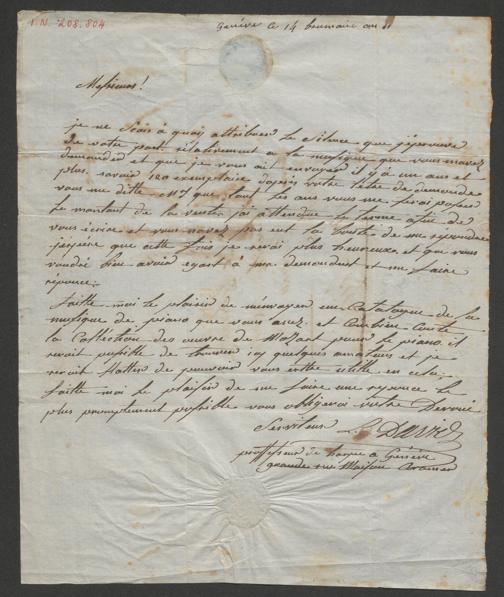 I.N. 208.804
Genève le 14 brumaire an 11
Messieurs!
je ne scais à quois attribuer le silence que j'éprouve
de votre part relativement a la musique que vous m'avez
demandez et que je vous ait envoyez il y à un ans et
plus, savoir 120 exemplaire d'après votre letre de demande
vous me ditte que tout les ans vous me ferai passer
le montant de la vente, j'ai attendue le terme afin de
vous écrire et vous n'avez pas eut la bonté de me répondre
j'espère que cette fois je serai plus heureux, et que vous
voudré bien avoir egard à ma demande et me faire
réponce.
faitte moi le plaisir de m'envoyer un Catalogue de la
musique de piano que vous avez et Combien Coute
la Collection des œuvre de Mozart pour le piano. il
serait possible de trouver ici quelques amateurs et je
serait flatter de pouvoir vous entre utile en cela.
faitte moi le plaisir de me faire une reponce le
plus promptement possible vous obligerai votre Devoué
Serviteur
proffesseur de harpe a Genève
grande rue Maison Cramer